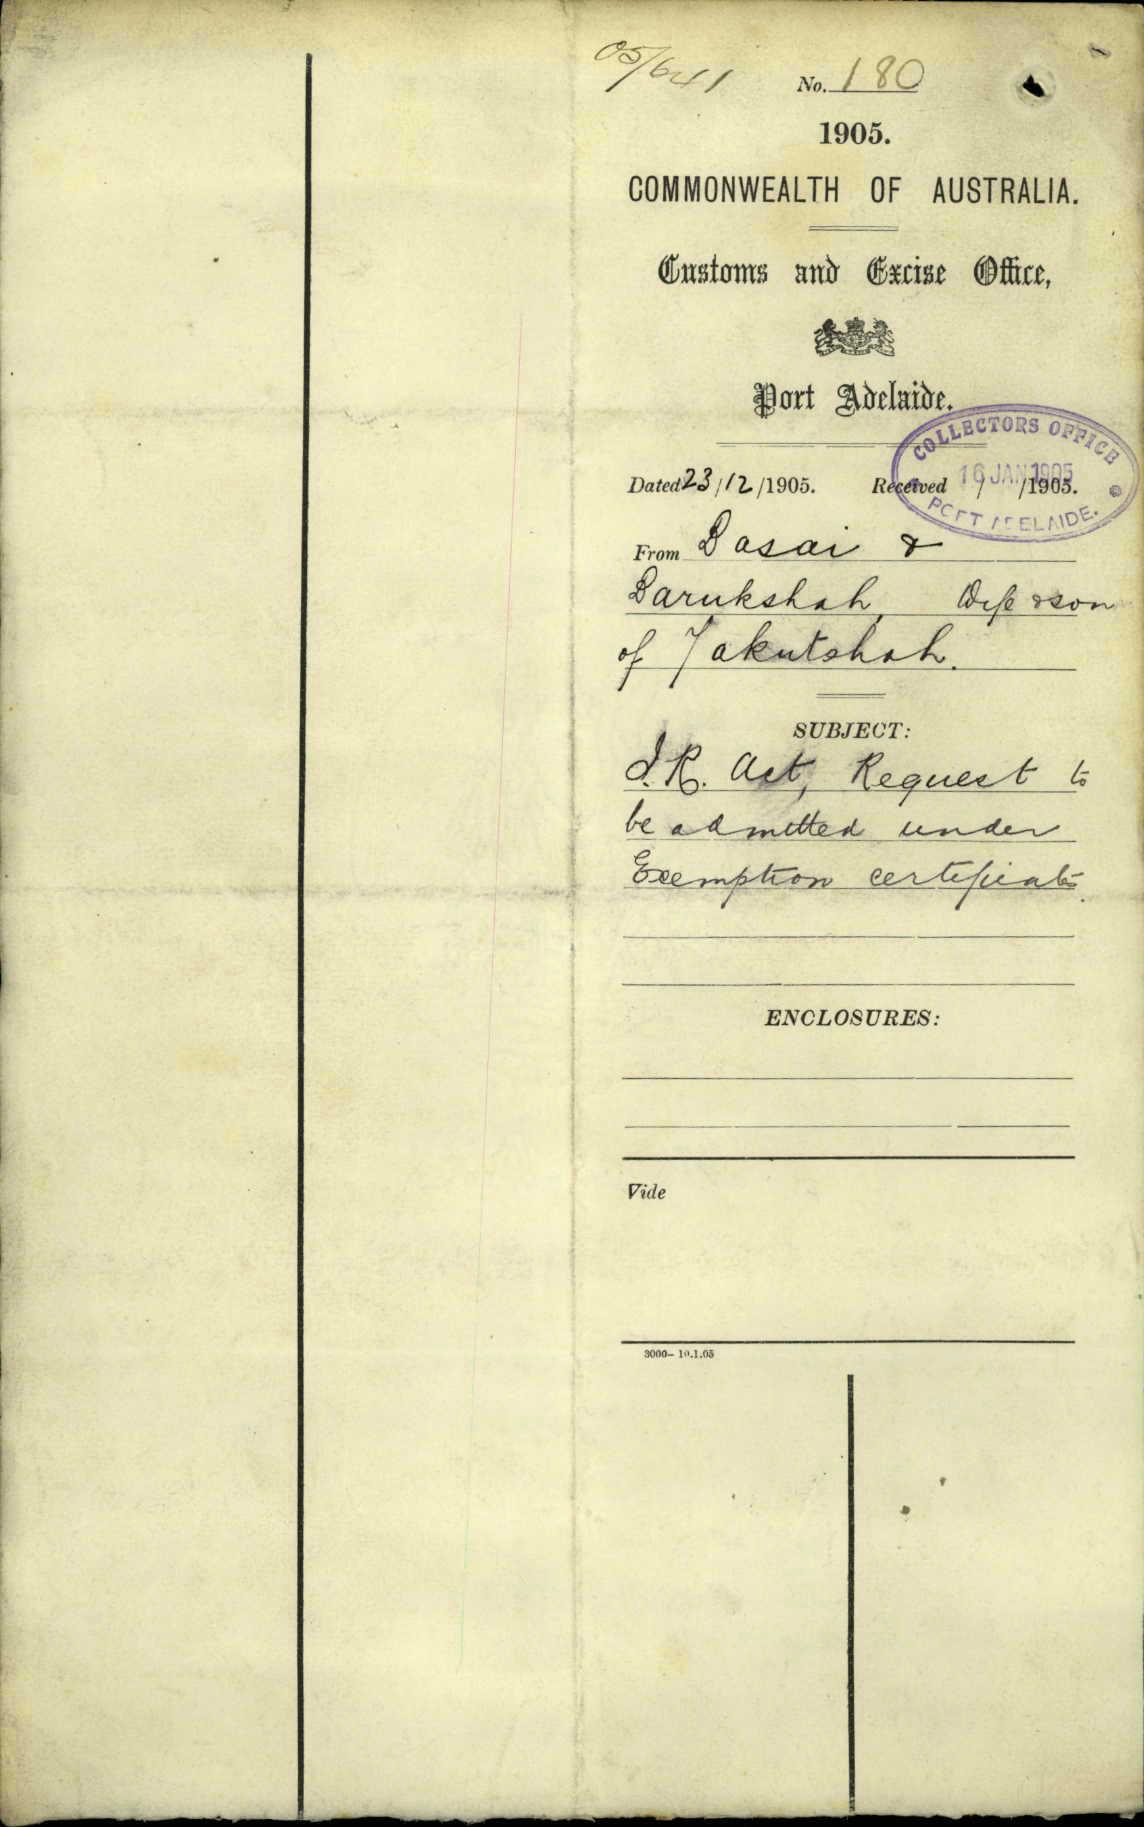 05/641
No. 180
1905.
COMMONWEALTH OF AUSTRALIA.
Customs and Excise Office,
Port Adelaide.
COLLECTORS OFFICE
16 JAN 1905
PORT ADELAIDE.
Dated 23/12/1905. Received / /1905.
From Basai &
Barukshah, Wife & son
of Yakutshah.
SUBJECT:
I.R. Act, Request to
be admitted under
Exemption certificate.
ENCLOSURES:
Vide
3000– 10.1.05